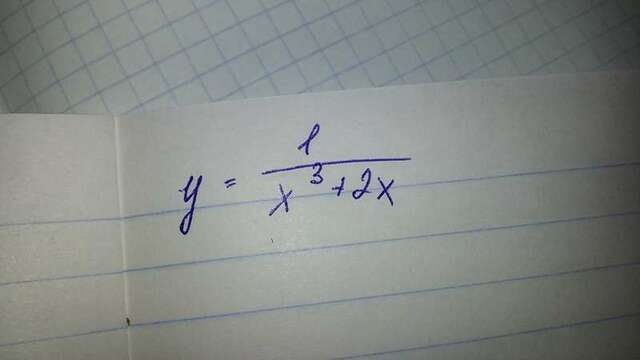 y = 1 / (x³ + 2x)